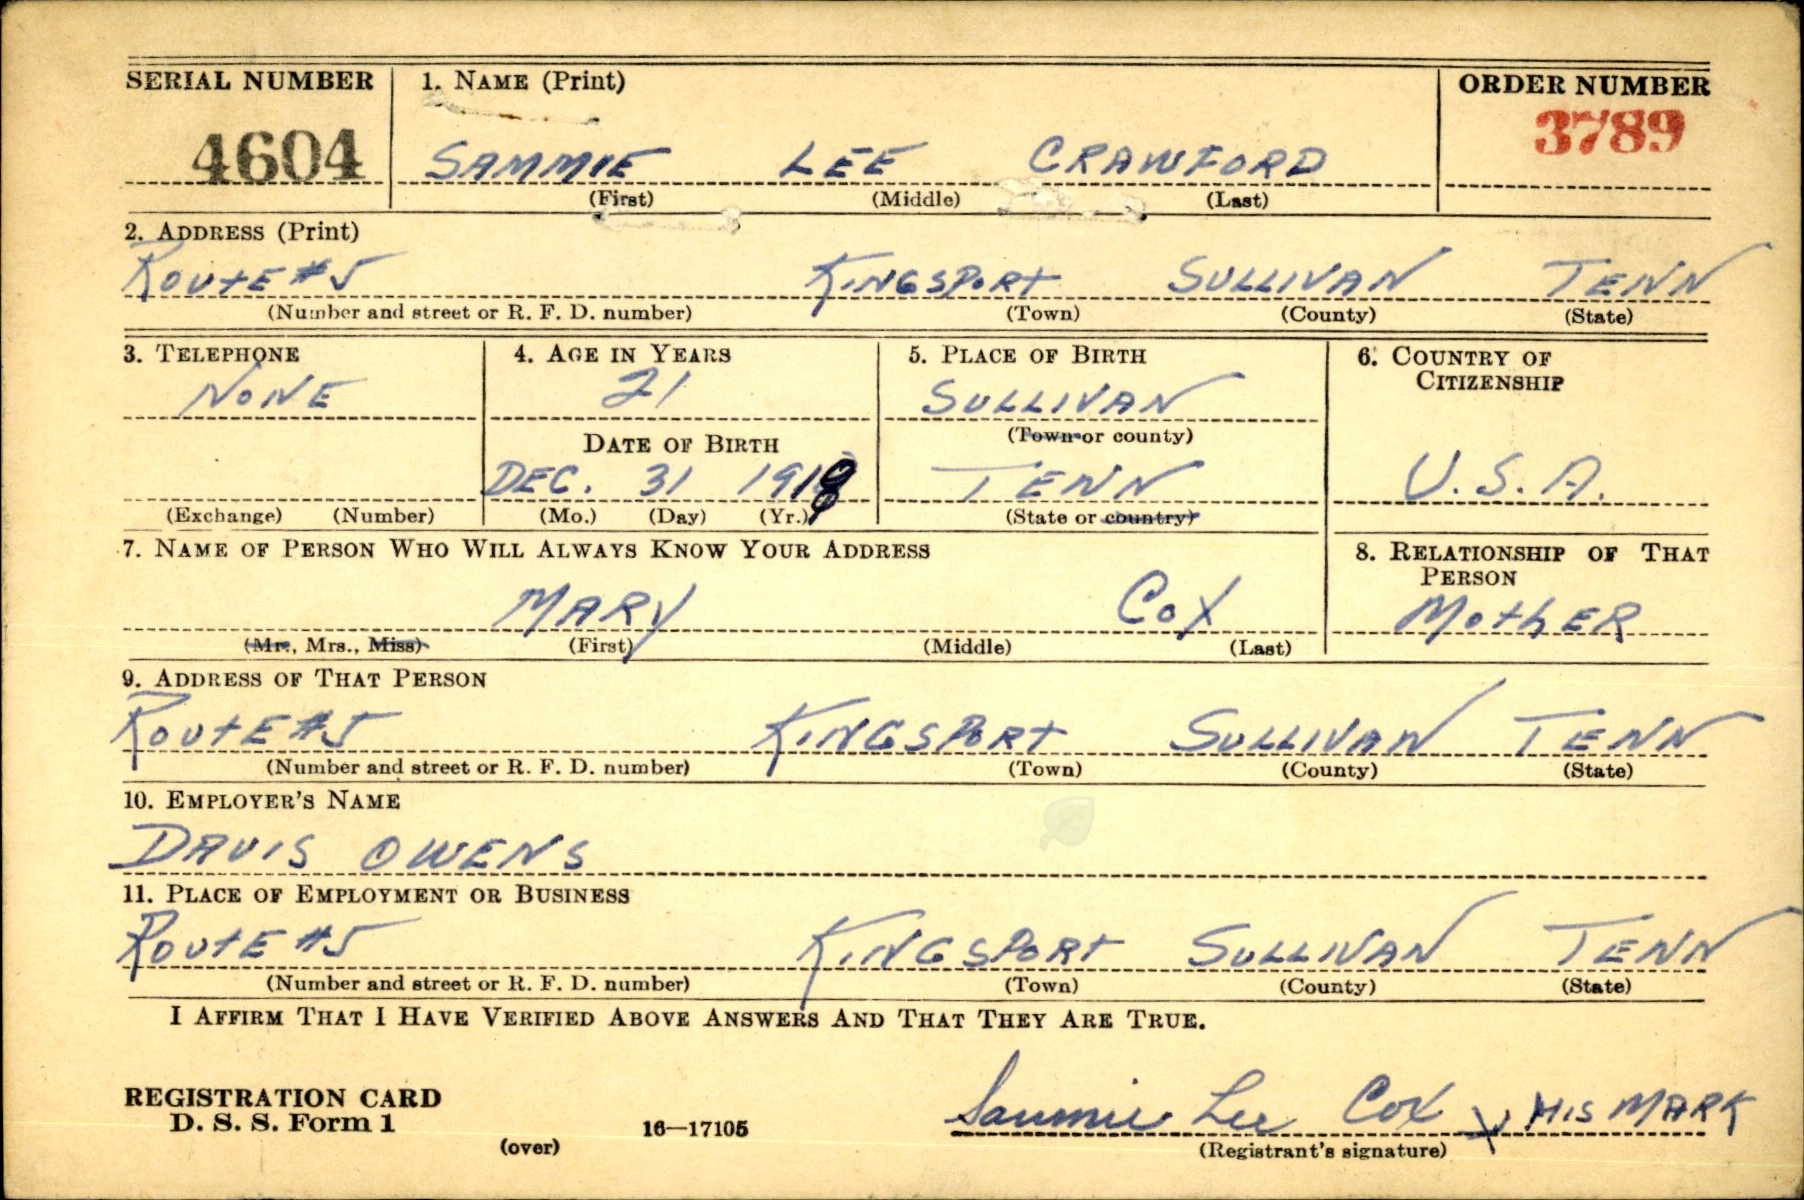 SERIAL NUMBER 1. NAME (Print) ORDER NUMBER
4604 SAMMIE LEE CRAWFORD 3789
(First) (Middle) (Last)
2. ADDRESS (Print)
ROUTE #5 KINGSPORT SULLIVAN TENN
(Number and street or R. F. D. number) (Town) (County) (State)
3. TELEPHONE 4. AGE IN YEARS 5. PLACE OF BIRTH 6. COUNTRY OF CITIZENSHIP
NONE 21 SULLIVAN
DATE OF BIRTH (Town or county)
DEC. 31 191 TENN U.S.A.
(Exchange) (Number) (Mo.) (Day) (Yr.) (State or country)
7. NAME OF PERSON WHO WILL ALWAYS KNOW YOUR ADDRESS 8. RELATIONSHIP OF THAT PERSON
MARY COX MOTHER
(Mr., Mrs., Miss) (First) (Middle) (Last)
9. ADDRESS OF THAT PERSON
ROUTE #5 KINGSPORT SULLIVAN TENN
(Number and street or R. F. D. number) (Town) (County) (State)
10. EMPLOYER'S NAME
DAVIS OWENS
11. PLACE OF EMPLOYMENT OR BUSINESS
ROUTE #5 KINGSPORT SULLIVAN TENN
(Number and street or R. F. D. number) (Town) (County) (State)
I AFFIRM THAT I HAVE VERIFIED ABOVE ANSWERS AND THAT THEY ARE TRUE.
REGISTRATION CARD
D. S. S. Form 1 Sammie Lee Cox X HIS MARK
(over) 16—17105 (Registrant's signature)